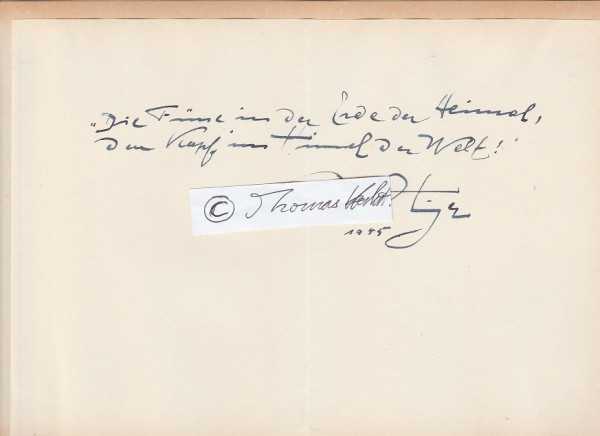 "Die Füsse in der Erde der Heimat,
den Kopf im Himmel der Welt!"
© Thomas
1985